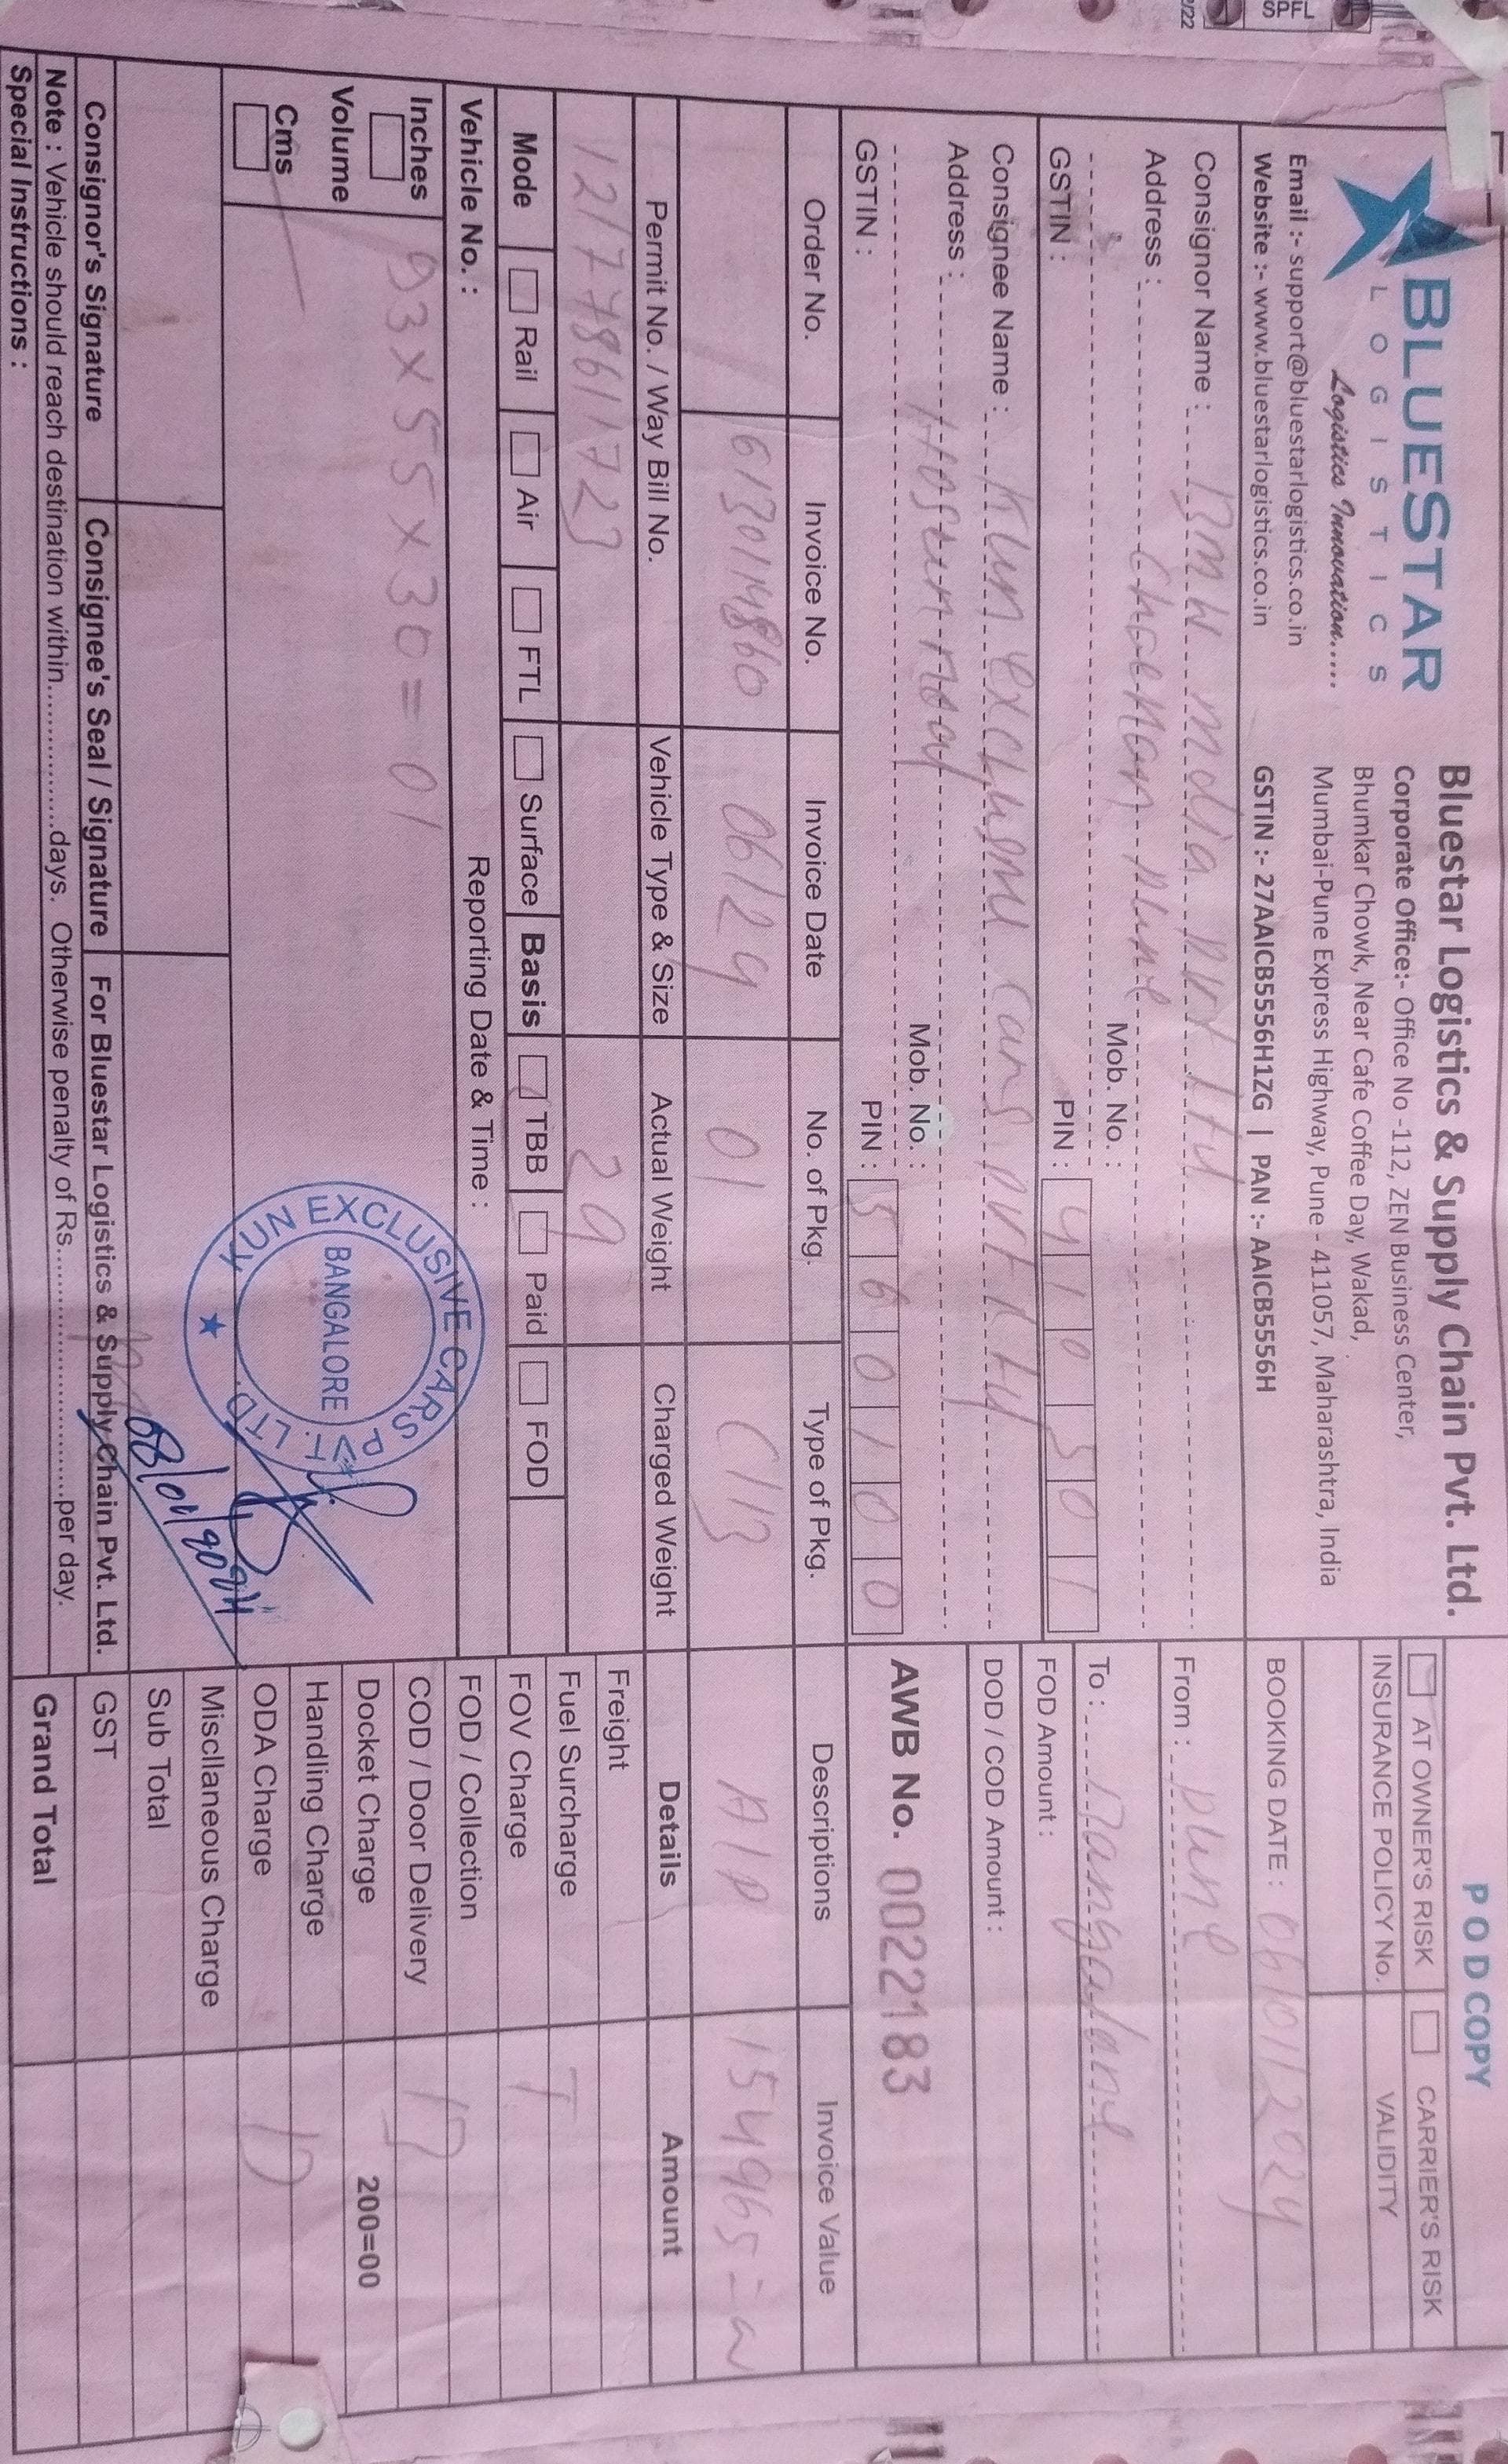 BLUESTAR
LOGISTICS
Logistics Innovation.....
Email :- support@bluestarlogistics.co.in
Website :- www.bluestarlogistics.co.in
Bluestar Logistics & Supply Chain Pvt. Ltd.
Corporate Office:- Office No -112, ZEN Business Center,
Bhumkar Chowk, Near Cafe Coffee Day, Wakad,
Mumbai-Pune Express Highway, Pune - 411057, Maharashtra, India
GSTIN :- 27AAICB5556H1ZG | PAN :- AAICB5556H
POD COPY
AT OWNER'S RISK CARRIER'S RISK
INSURANCE POLICY No. VALIDITY
BOOKING DATE : 06/01/2024
Consignor Name : BMW India pvt Ltd
Address : pune
Mob. No. :
GSTIN : PIN : 410501
From : pune
To : Bangalore
FOD Amount :
DOD / COD Amount :
AWB No. 0022183
Consignee Name : Kun exclusive cars pvt Ltd
Address : Hosur road
Mob. No. :
GSTIN : PIN : 560100
Order No. Invoice No. Invoice Date No. of Pkg. Type of Pkg. Descriptions Invoice Value
6130114860 06/24 01 C/B A/P 154965=
Permit No. / Way Bill No. Vehicle Type & Size Actual Weight Charged Weight Details Amount
121778611723 29
Mode Rail Air FTL Surface Basis TBB Paid FOD
Vehicle No. : Reporting Date & Time :
Inches
Volume
Cms
93x55x30=01
KUN EXCLUSIVE CARS PVT. LTD.
BANGALORE
08/01/2024
Freight
Fuel Surcharge T
FOV Charge
FOD / Collection
COD / Door Delivery B
Docket Charge 200=00
Handling Charge
ODA Charge
Miscllaneous Charge
Sub Total
GST
Grand Total
Consignor's Signature Consignee's Seal / Signature For Bluestar Logistics & Supply Chain Pvt. Ltd.
Note : Vehicle should reach destination within.................days. Otherwise penalty of Rs.............................per day.
Special Instructions :
SPFL